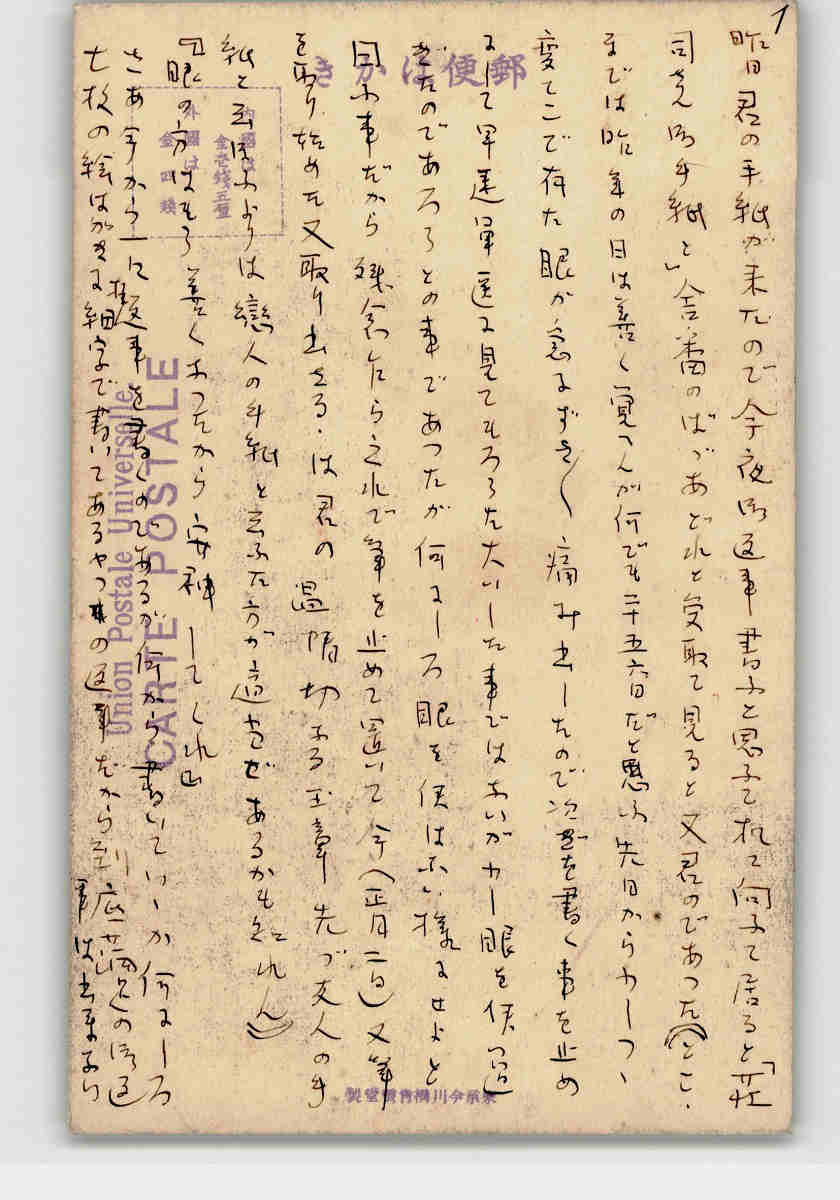 1
昨日君の手紙が来たので今夜御返事書ふと思ふて机に向ふて居ると「荘
司さん御手紙と」合番のばつあどれと受取て見ると又君のであつた(とこ
までは昨年の日は善く覚へんが何でも二十五六日だと思ふ先日から少しつゝ
変てこで有た眼が急にずき〱痛み出したので次ぎを書く事を止め
にして早速軍医に見てもろうた大いした事ではあいが少し眼を使つ過
ぎたのであろうとの事であつたが何にしろ眼を使はふい様にせよと
因ふ事だから残念乍ら之れで筆を止めて置いて今(正月二日)又筆
を取り始めた又取り出せる・は君の温情切ある玉章先づ友人の手
紙と云ほふよりは戀人の手紙と云ふた方が適当ぜあるかも知れん)
『眼の方はもう善くあつたから安神してくれ』
さあ今から一に返事を書くのであるが何から書いていゝか何にしろ
七枚の絵はがきに細字で書いてあるやつの返事だから到底満足の御返
事は出来ない
郵便はかき
内國は
金壱銭五厘
外國は
金四銭
Union Postale Universelle
CARTE POSTALE